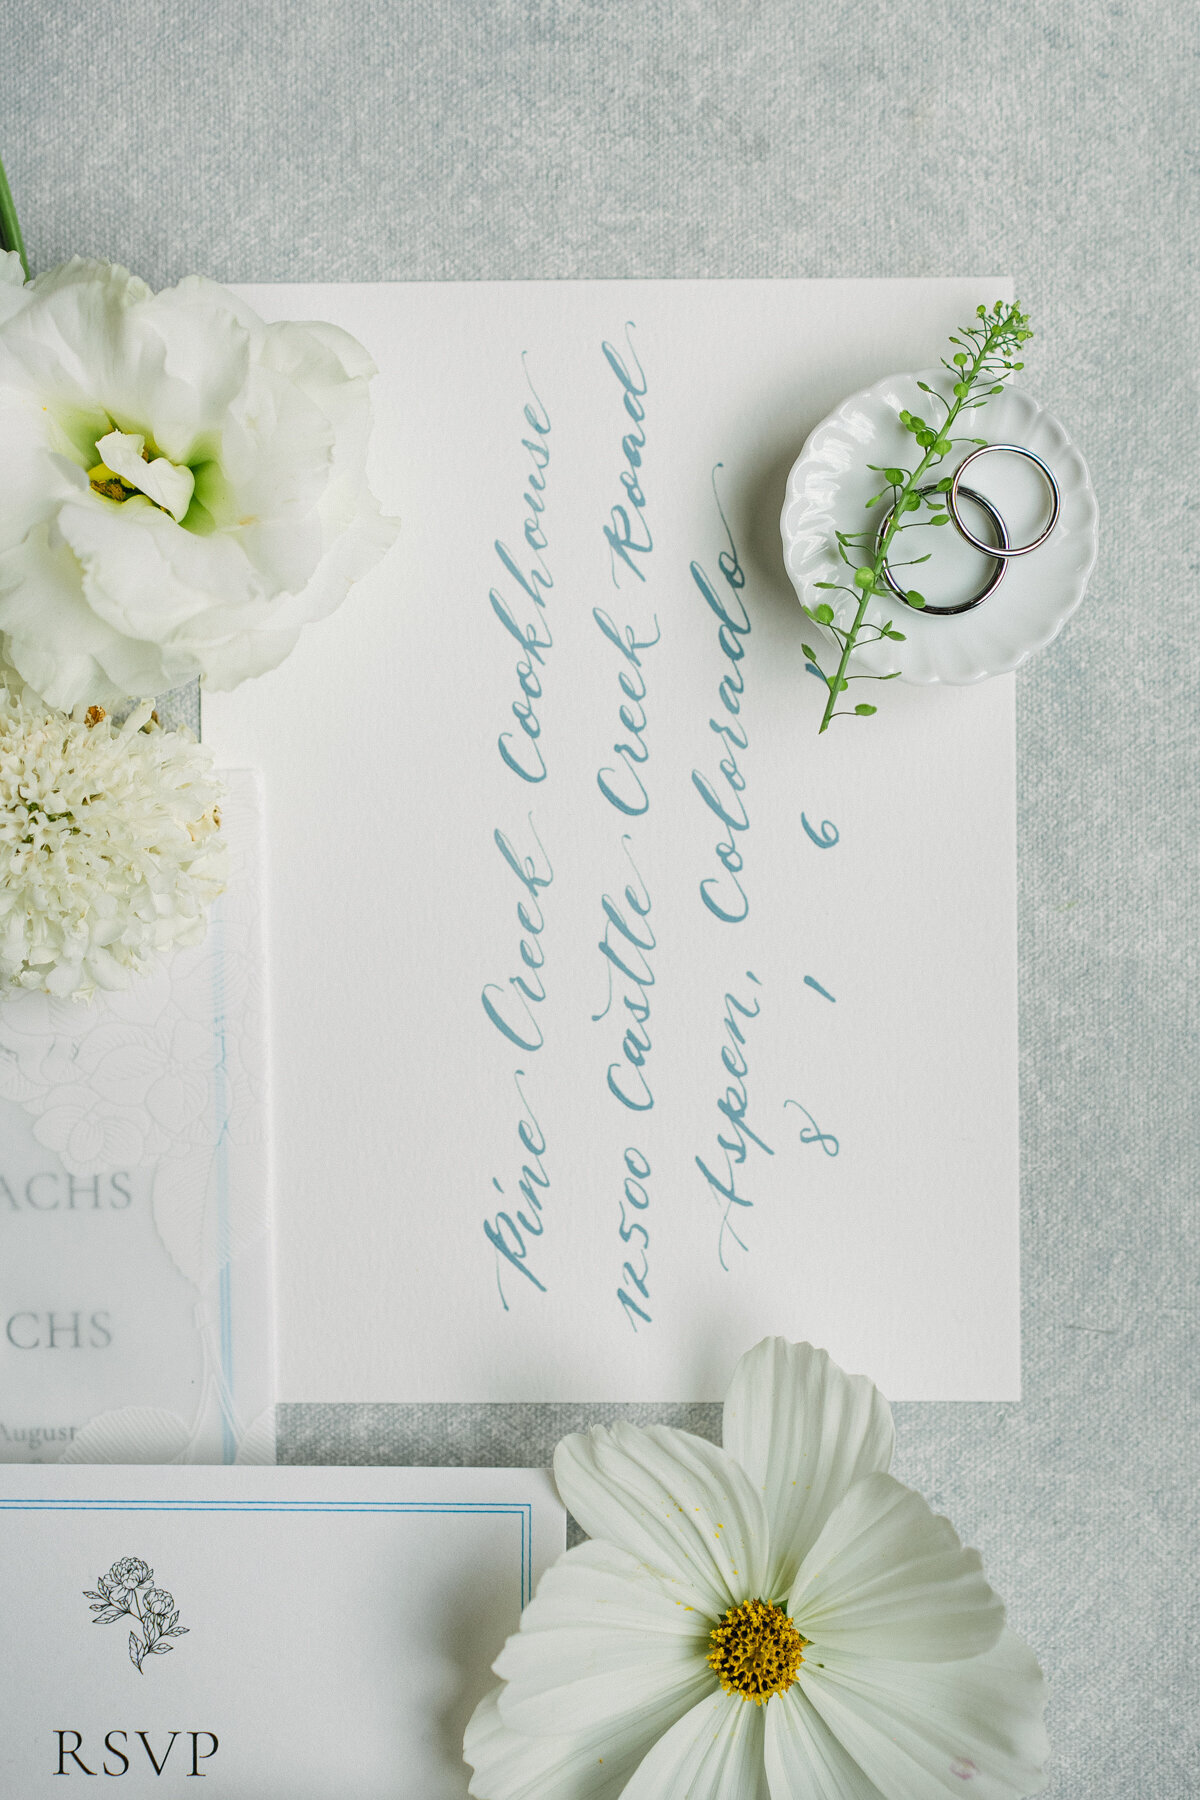 Pine Creek Cookhouse
12500 Castle Creek Road
Aspen, Colorado
8 1 6
ACHS
CHS
August
RSVP